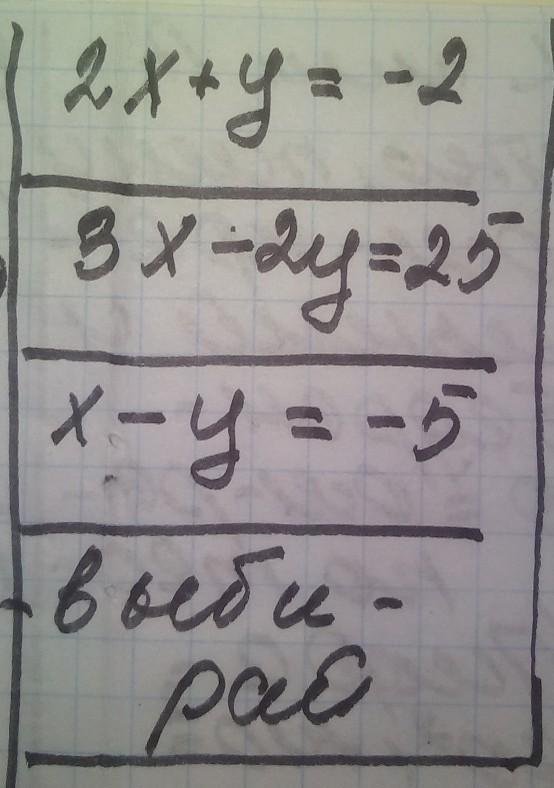 2x+y=-2
3x-2y=25
x-y=-5
выби-
рай